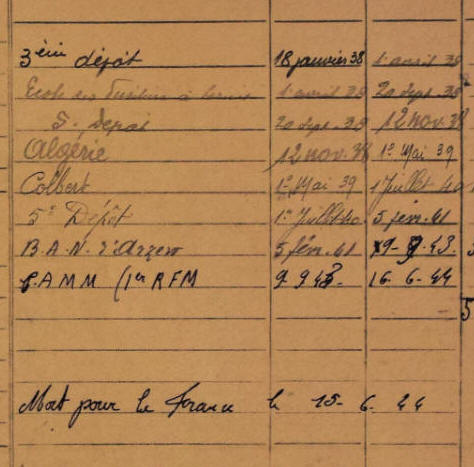 3ème dépôt 18 janvier 38 1er avril 39
Ecole des Fusiliers à Lorient 1er avril 39 20 sept. 39
5. Depot 20 sept. 39 12 nov. 38
Algérie 12 nov. 38 1er Mai 39
Colbert 1er Mai 39 1 Juillet 40
5e Dépôt 1er Juillet 40. 5 fév. 41
B.A.N. d'Arzew 5 fév. 41 9-9-43.
C.A M M (1er R F M 9 9 43. 16. 6. 44
5
Mort pour la France le 15- 6. 44